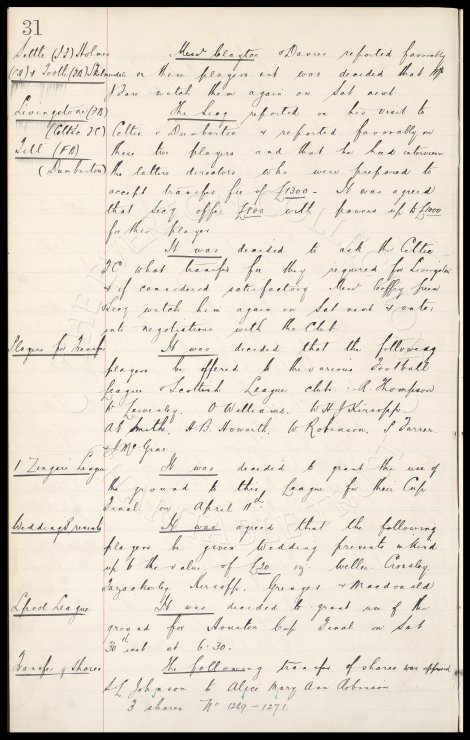 31
Settle (IF) Holmes
(CH) & Tootill (FB) Sheff
Messrs Clayton & Davies reported favourably
on these players & it was decided that Mr
Dare watch them again on Sat next
Livingstone (FB)
(Celtic FC)
Tell (FB)
(Dumbarton)
The Secy reported on his visit to
Celtic & Dumbarton & reported favourably on
these two players and that he had interviewed
the latters directors who were prepared to
accept transfer fee of £1300 - It was agreed
that Secy offer £800 with powers up to £1000
for this player
It was decided to ask the Celtic
FC what transfer fee they required for Livingstone
& if considered satisfactory Messrs Coffey Green
Secy watch him again on Sat next & enter
into negotiations with the Club.
Players for Transfer
It was decided that the following
players be offered to the various Football
League & Scottish League clubs: A. Thompson
O Williams. W H J Kirsopp
A E Smith. H. B. Howorth. W Robinson. J Farrer.
& J McGrae
I Zingari League
It was decided to grant the use of
the ground to this League for their Cup
Final on April 11th
Wedding Presents
It was agreed that the following
players be given Wedding presents in kind
up to the value of £20 viz Weller. Crossley.
Fazackerley. Kirsopp. Grenyer & Macdonald
Lpool League
It was decided to grant use of the
ground for Houston Cup Final on Sat
30th inst at 6-30.
Transfer of Shares
The following transfer of shares was approved
S. L. Johnson to Alice Mary Ann Robinson
3 shares No 1269 - 1271.